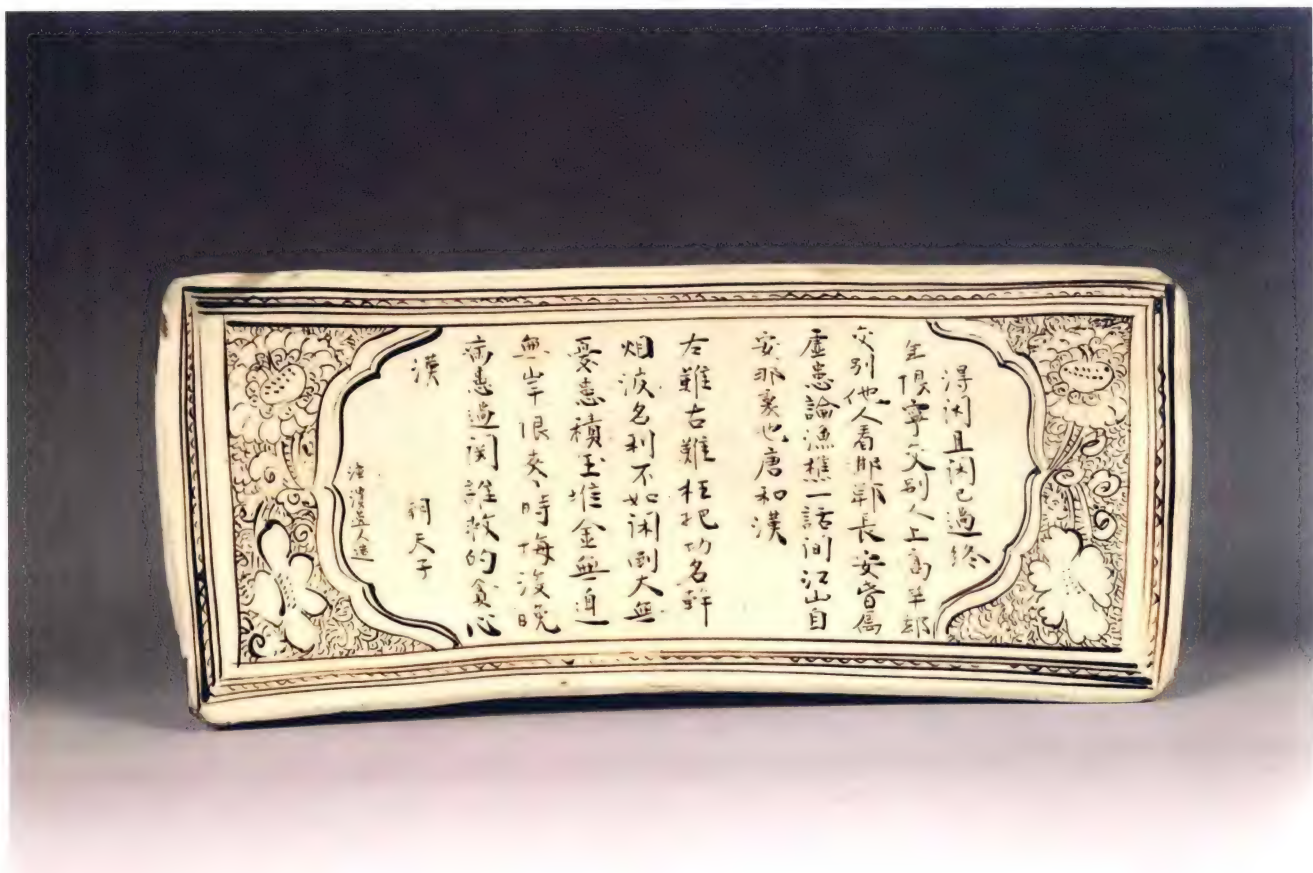 得闲且闲已過終
年限寧交别人上高竿都
交别他人看邯鄲長安皆属
虚患論漁樵一話间江山自
安那裏也唐和漢
左難右難枉把功名幹
烟波名利不如闲到大無
憂患積玉堆金無邉
無岸限来々時悔後晚
病患過関誰救的貪心
漢
詞天子
漳濱逸人造